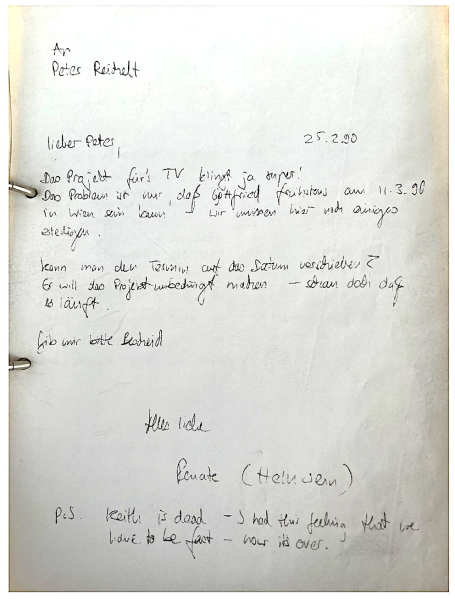 An
Peter Reichelt
lieber Peter, 25.2.90
Das Projekt für's TV klingt ja super!
Das Problem ist nur, daß Gottfried frühstens am 11.3.90
in Wien sein kann – wir müssen hier noch einiges
erledigen.
Kann man den Termin auf das Datum verschieben?
Er will das Projekt unbedingt machen – schau doch daß
es läuft.
Gib mir bitte Bescheid
Alles liebe
Renate (Helnwein)
P.S. Keith is dead – I had this feeling that we
have to be fast – now it's over.